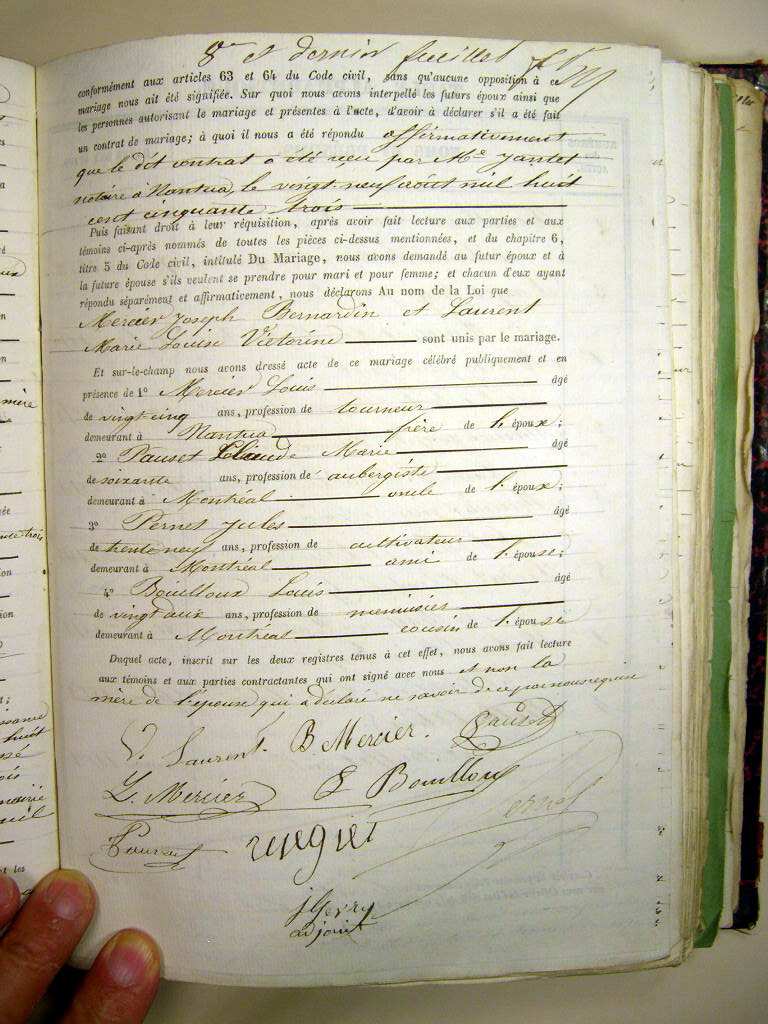 8e et dernier feuillet
conformément aux articles 63 et 64 du Code civil, sans qu'aucune opposition à ce
mariage nous ait été signifiée. Sur quoi nous avons interpellé les futurs époux ainsi que
les personnes autorisant le mariage et présentes à l'acte, d'avoir à déclarer s'il a été fait
un contrat de mariage; à quoi il nous a été répondu affirmativement
que le dit contrat a été reçu par Me Jantet
notaire à Nantua, le vingt neuf août mil huit
cent cinquante trois
Puis faisant droit à leur réquisition, après avoir fait lecture aux parties et aux
témoins ci-après nommés de toutes les pièces ci-dessus mentionnées, et du chapitre 6,
titre 5 du Code civil, intitulé Du Mariage, nous avons demandé au futur époux et à
la future épouse s'ils veulent se prendre pour mari et pour femme; et chacun d'eux ayant
répondu séparément et affirmativement, nous déclarons Au nom de la Loi que
Mercier Joseph Bernardin et Laurent
Marie Louise Victorine sont unis par le mariage.
Et sur-le-champ nous avons dressé acte de ce mariage célébré publiquement et en
présence de 1o Mercier Louis âgé
de vingt cinq ans, profession de tourneur
demeurant à Nantua frère de l'époux;
2o Pauset Claude Marie âgé
de soixante ans, profession de aubergiste
demeurant à Montréal oncle de l'époux;
3o Pernet Jules âgé
de trente neuf ans, profession de cultivateur
demeurant à Montréal ami de l'épouse;
4o Bouilloux Louis âgé
de vingt deux ans, profession de menuisier
demeurant à Montréal cousin de l'épouse
Duquel acte, inscrit sur les deux registres tenus à cet effet, nous avons fait lecture
aux témoins et aux parties contractantes qui ont signé avec nous et non la
mère de l'épouse qui a déclaré ne savoir de ce par nous requise
V. Laurent. B Mercier. Pauset
L. Mercier L Bouilloux
Pernet
Laurent
J Gevry
adjoint